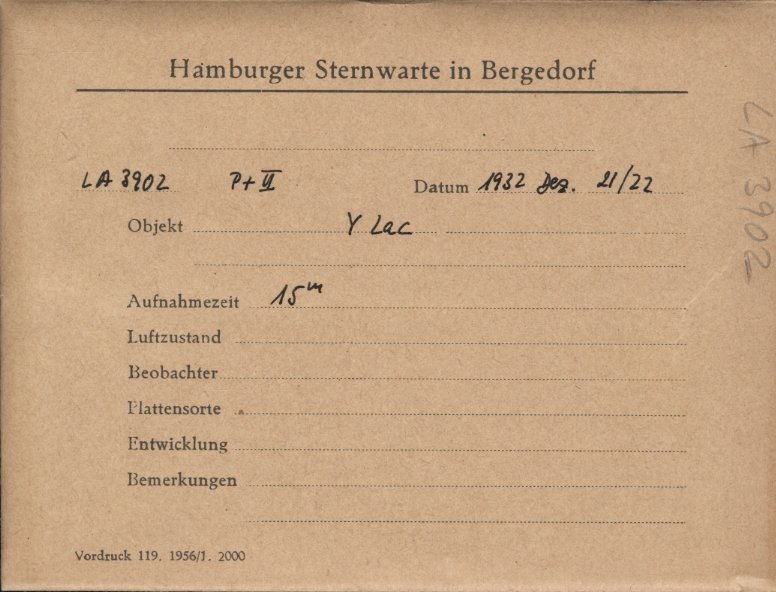 Hamburger Sternwarte in Bergedorf
LA 3902 P+II Datum 1932 Dez. 21/22
Objekt Y Lac
Aufnahmezeit 15m
Luftzustand
Beobachter
Plattensorte
Entwicklung
Bemerkungen
Vordruck 119. 1956/1. 2000
LA 3902